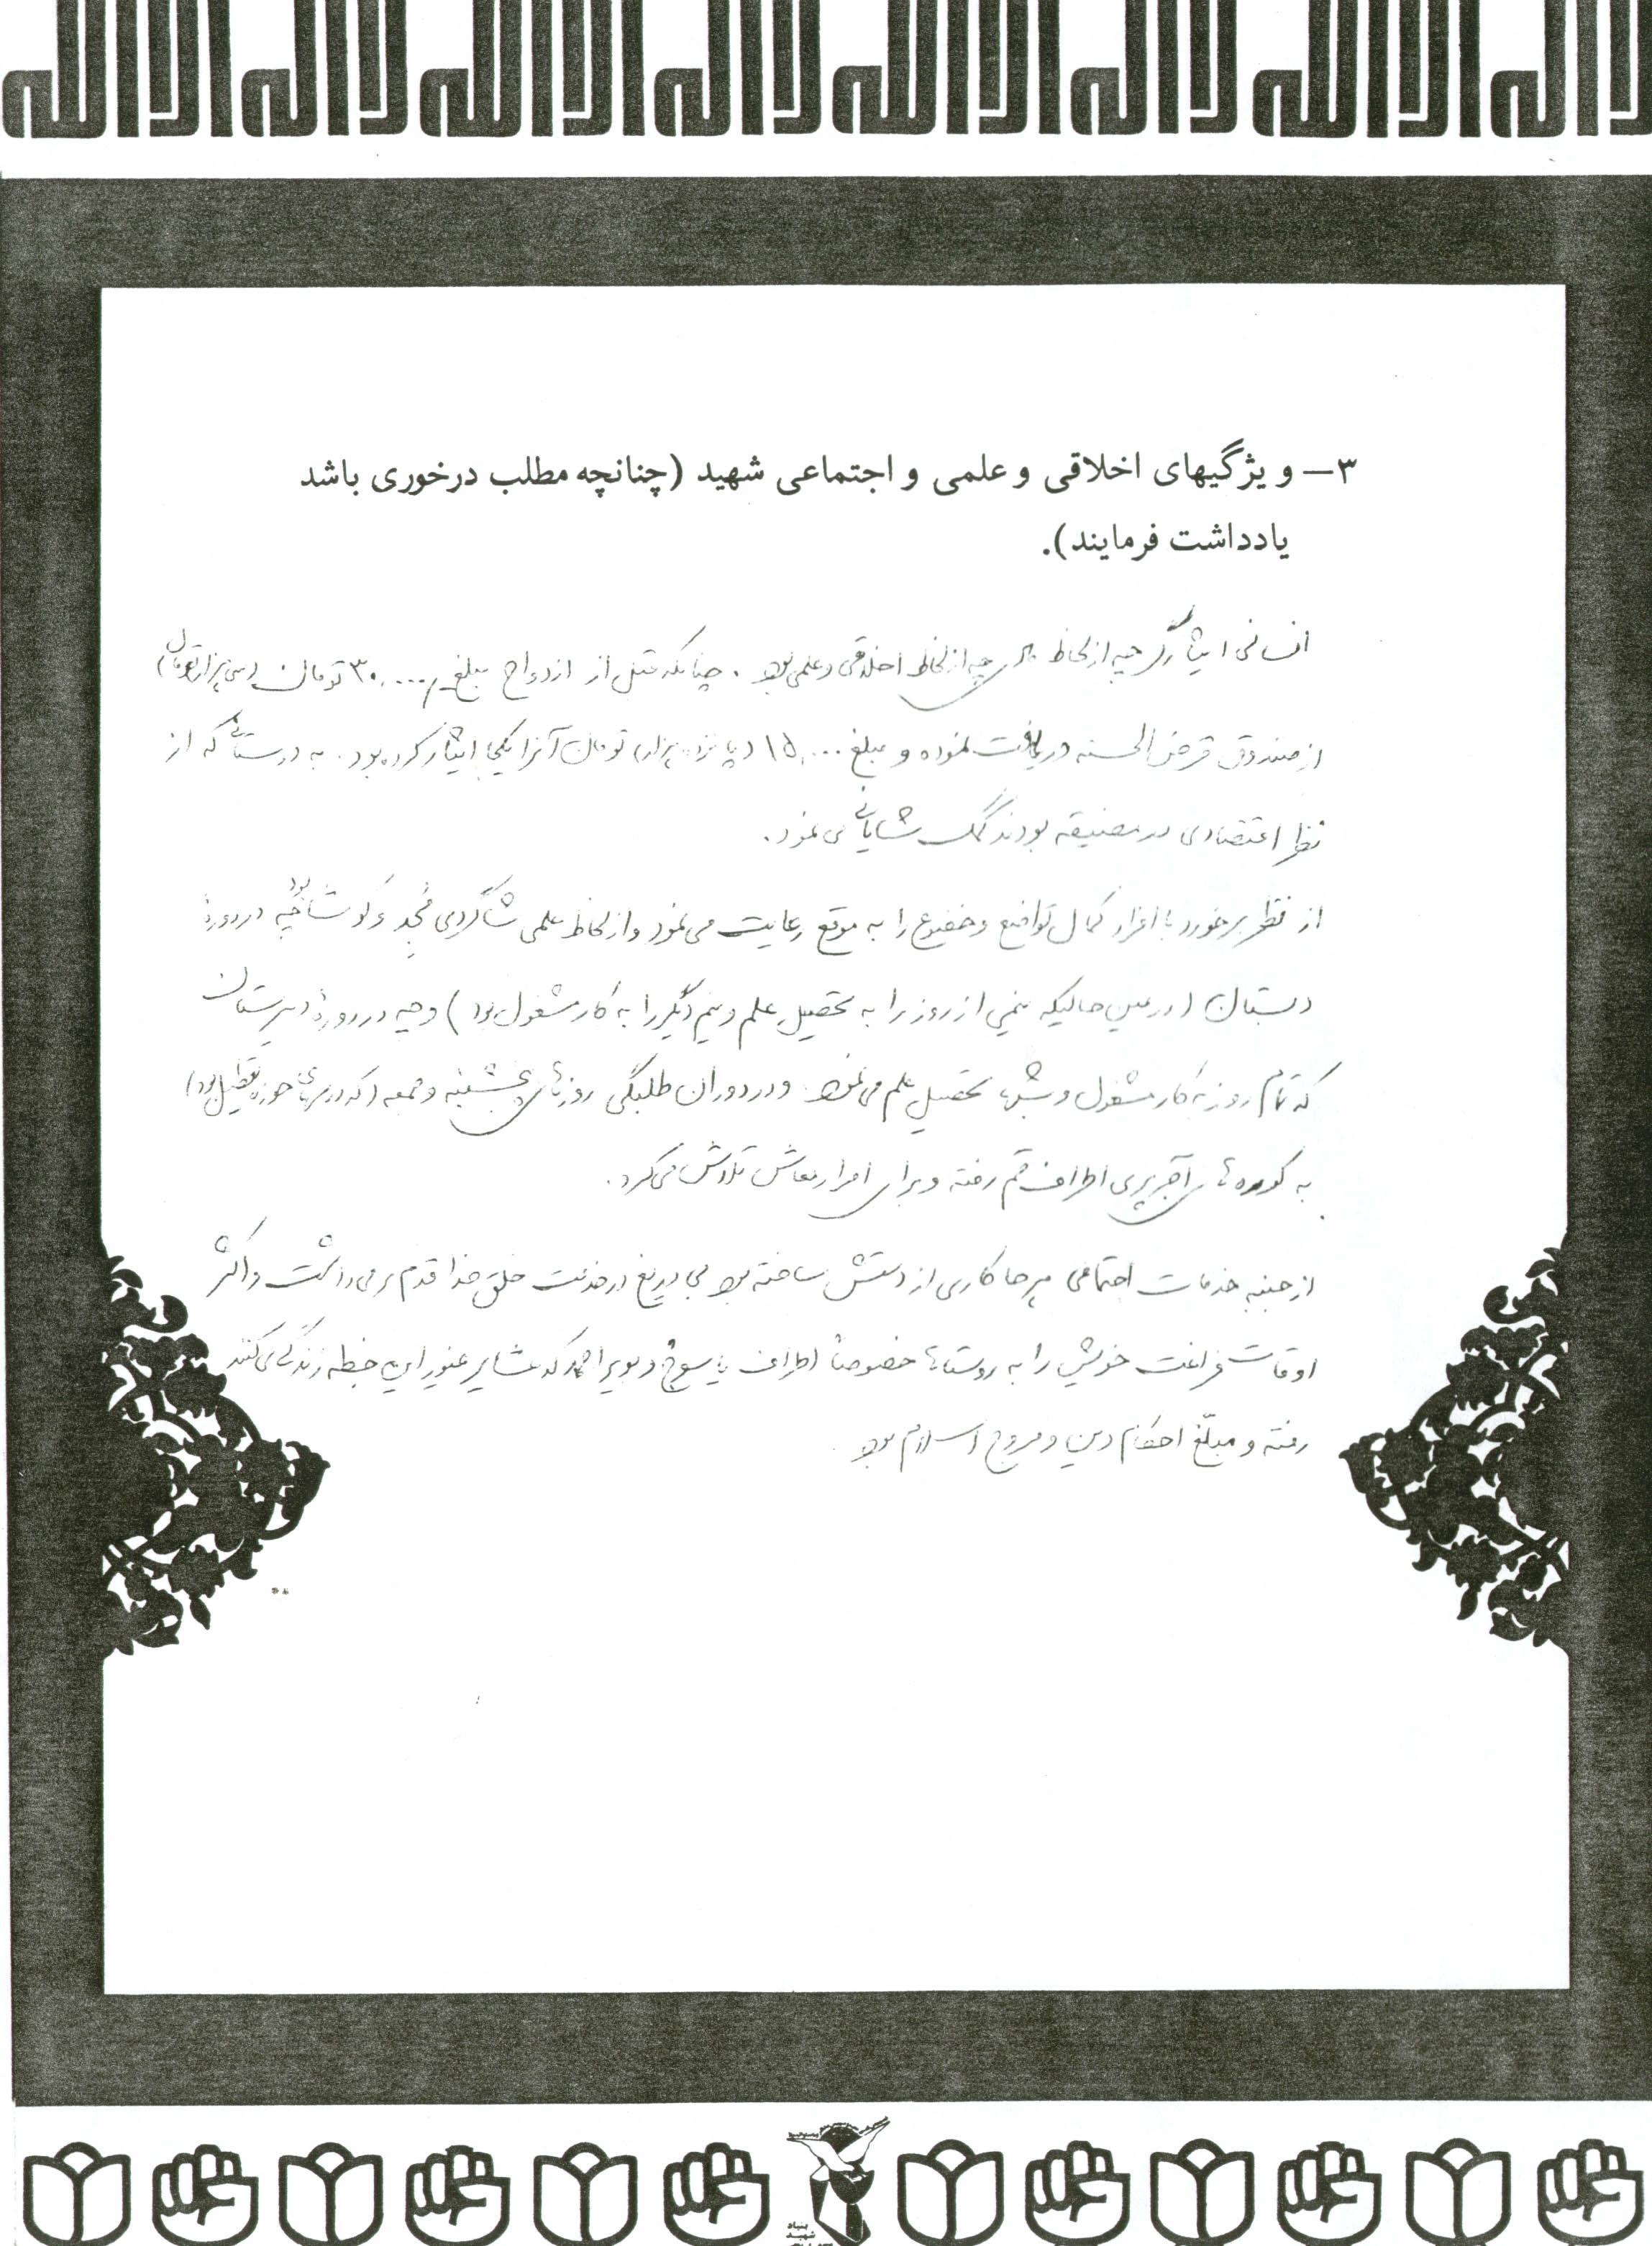 ۳– ویژگیهای اخلاقی و علمی و اجتماعی شهید (چنانچه مطلب درخوری باشد
یادداشت فرمایند).
انسانی ایثارگر چه از لحاظ مالی چه از لحاظ اخلاقی و علمی بود. چنانکه قبل از ازدواج مبلغ ۳۰,۰۰۰ تومان (سی هزار تومان)
از صندوق قرض الحسنه دریافت نموده و مبلغ ۱۵,۰۰۰ (پانزده هزار) تومان آنرا یکجا ایثار کرده بود. به دوستانی که از
نظر اقتصادی در مضیقه بودند کمک شایانی می نمود.
از نظر برخورد با افراد کمال تواضع و خضوع را به موقع رعایت می نمود و از لحاظ علمی شاگردی مُجِد و کوشا بود چه در دورهٔ
دبستان (در عین حالیکه نیمی از روز را به تحصیل علم و نیم دیگر را به کار مشغول بود) و چه در دورهٔ دبیرستان
که تمام روز به کار مشغول و شبها تحصیل علم می نمود. و در دوران طلبگی روزهای پنجشنبه و جمعه (که درسهای حوزه تعطیل بود)
به کوره های آجرپزی اطراف قم رفته و برای امرار معاش تلاش می کرد.
از جنبه خدمات اجتماعی هر جا کاری از دستش ساخته بود بی دریغ در خدمت خلق خدا قدم برمی داشت و اکثر
اوقات فراغت خویش را به روستاها خصوصاً اطراف یاسوج و بویراحمد که عشایر غیور این خطه زندگی می کنند
رفته و مبلّغ احکام دین و مروج اسلام بود
بنیاد
شهید